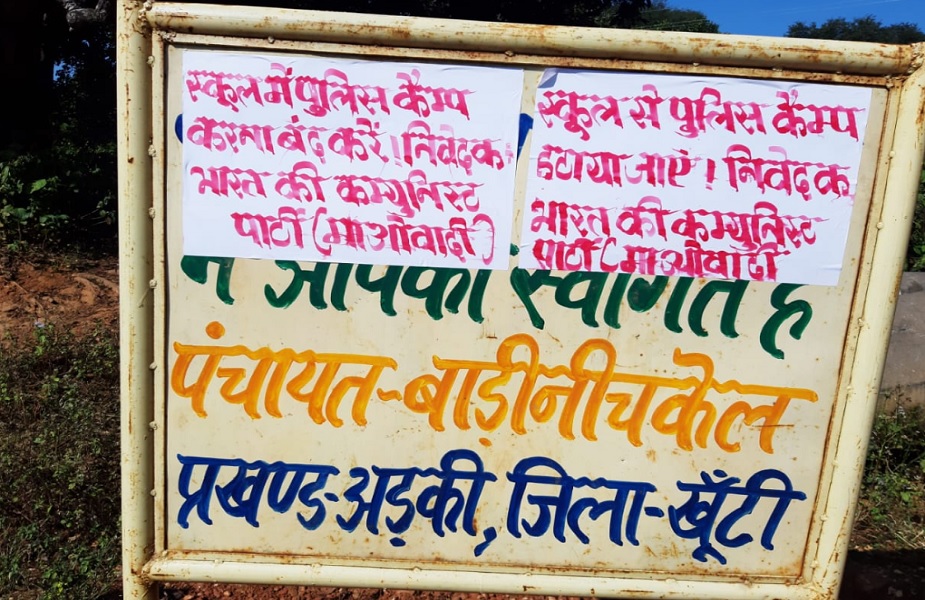 स्कूल में पुलिस कैम्प
करना बंद करें। निवेदक
भारत की कम्युनिस्ट
पार्टी (माओवादी)
स्कूल से पुलिस कैम्प
हटाया जाएं। निवेदक
भारत की कम्युनिस्ट
पार्टी (माओवादी
में आपका स्वागत है
पंचायत-बाड़ीनीचकेल
प्रखण्ड-अड़की, जिला-खूँटी